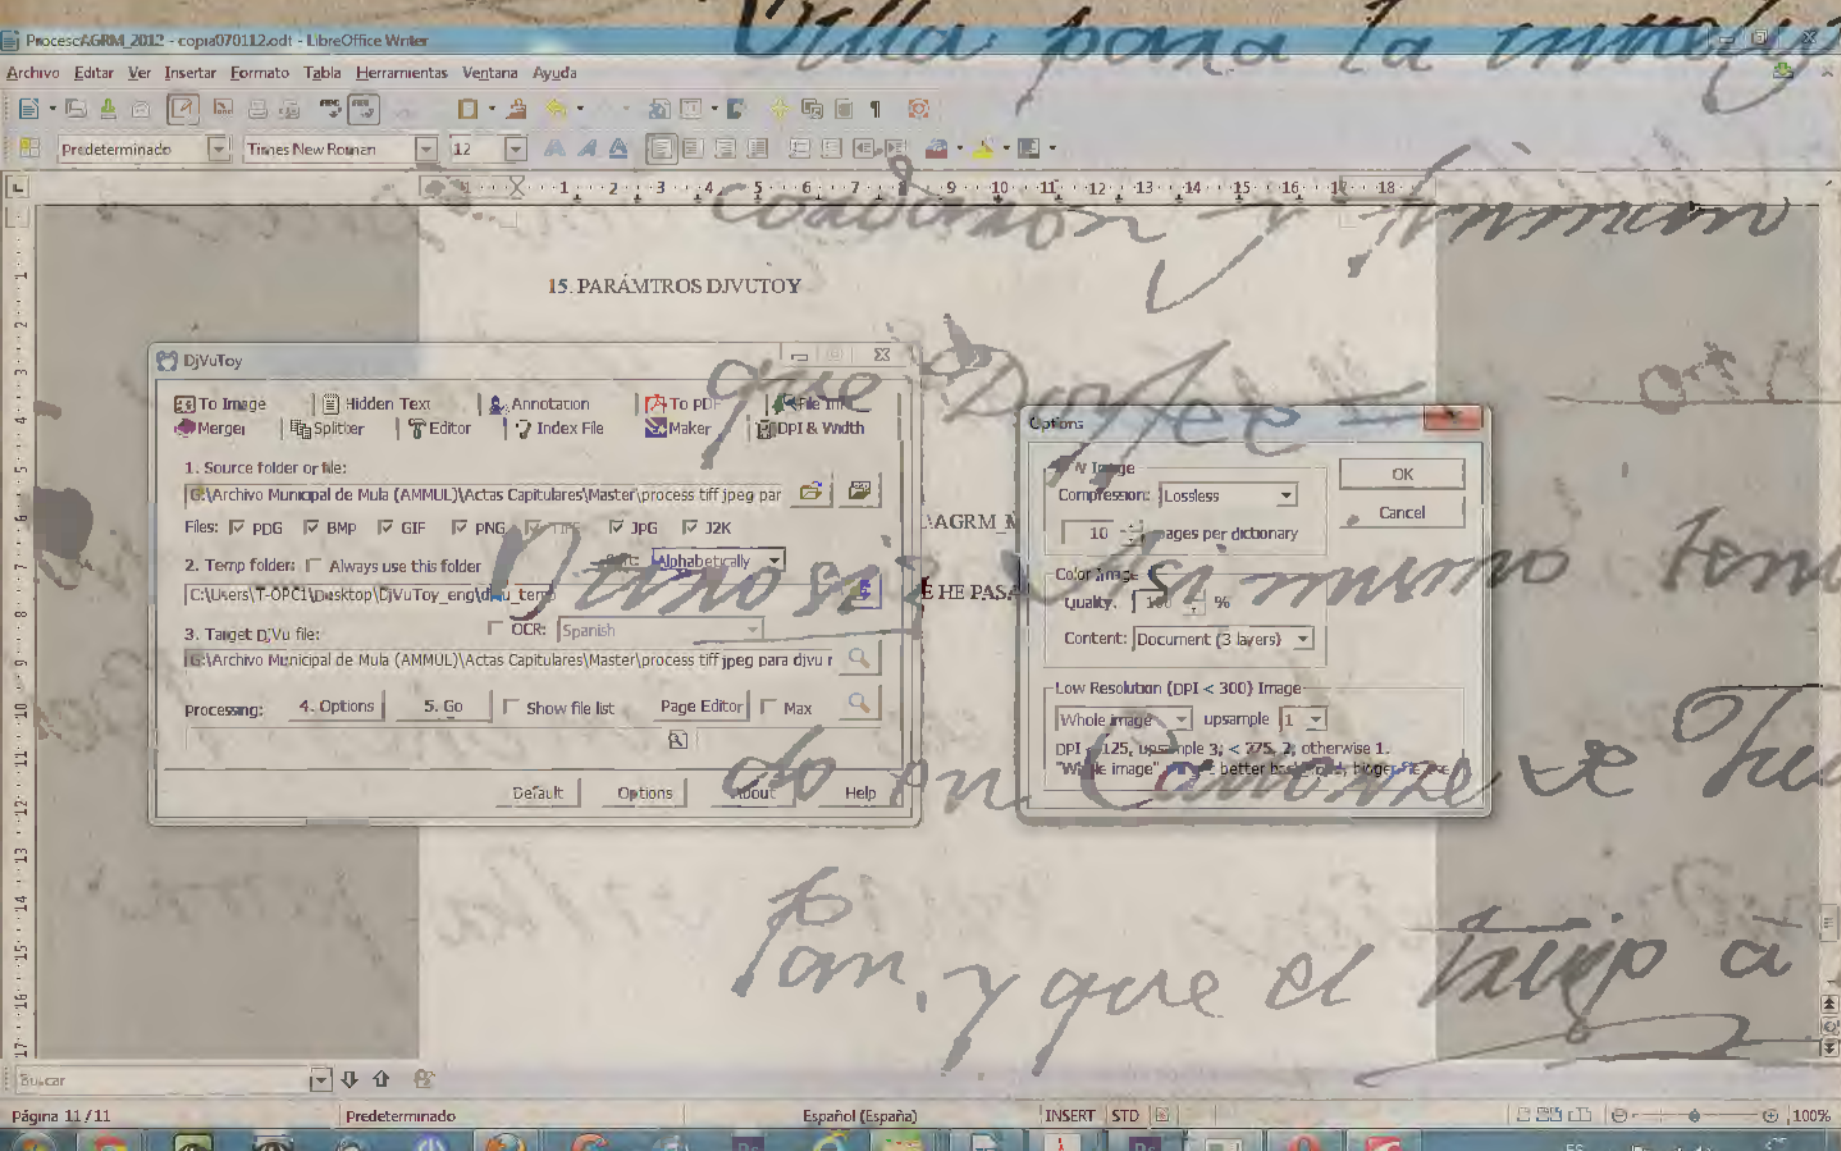 Villa para la
ProcescAGRM_2012 - copia070112.odt - LibreOffice Writer
Archivo Editar Ver Insertar Formato Tabla Herramientas Ventana Ayuda
Predeterminado Times New Roman 12
1 1 2 3 4 5 6 7 8 9 10 11 12 13 14 15 16 17 18
y
15. PARÁMTROS DJVUTOY
DjVuToy
To Image Hidden Text Annotation To PDF File Inf
Merger Splitter Editor Index File Maker DPI & Width
que
1. Source folder or file:
G:\Archivo Municipal de Mula (AMMUL)\Actas Capitulares\Master\process tiff jpeg par
Files: PDG BMP GIF PNG TIFF JPG J2K
2. Temp folder: Always use this folder Sort: Alphabetically
C:\Users\T-OPC1\Desktop\DjVuToy_eng\djvu_temp
3. Target DjVu file: OCR: Spanish
G:\Archivo Municipal de Mula (AMMUL)\Actas Capitulares\Master\process tiff jpeg para djvu r
Processing: 4. Options 5. Go Show file list Page Editor Max
Default Options About Help
\AGRM_M
E HE PASA
Options
Image
Compression: Lossless
10 pages per dictionary
OK
Cancel
Color Image
Quality: 100 %
Content: Document (3 layers)
Low Resolution (DPI < 300) Image
Whole image upsample 1
DPI < 125, upsample 3; < 275, 2; otherwise 1.
"Whole image" better bigger
mismo
do en
y que el trujo a
Buscar
Página 11 / 11 Predeterminado Español (España) INSERT STD 100%
ES